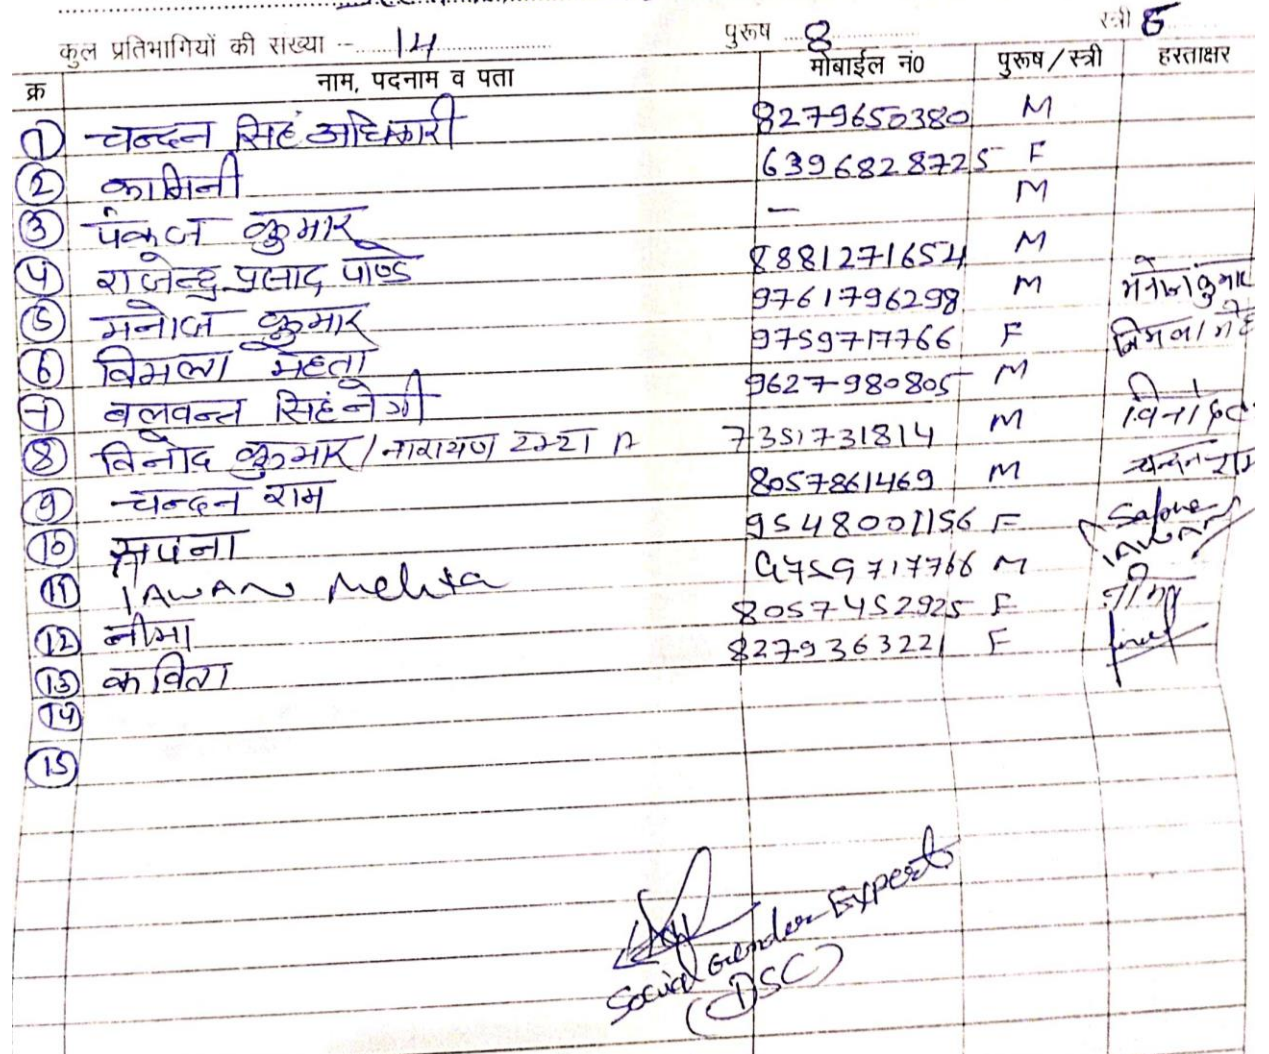 कुल प्रतिभागियों की संख्या -- 14 पुरूष 8 स्त्री 6
क्र नाम, पदनाम व पता मोबाईल नं0 पुरूष/स्त्री हस्ताक्षर
1 चन्दन सिहं अधिकारी 8279650380 M
2 कामिनी 6396828725 F
3 पंकज कुमार — M
4 राजेन्द्र प्रसाद पाण्डे 8881271654 M
5 मनोज कुमार 9761796298 M मनोज कुमार
6 विमला मेहता 9759717766 F विमला
7 बलवन्त सिहं नेगी 9627980805 M
8 विनोद कुमार / नारायण 7351731814 M विनोद
9 चन्दन राम 8057861469 M चन्दन राम
10 सपना 9548001156 F
11 JAWAN Mehta 9759717766 M JAWAN
12 नीमा 8057452925 F नीमा
13 कविता 8279363221 F
14
15
Social Gender Expert
(DSC)